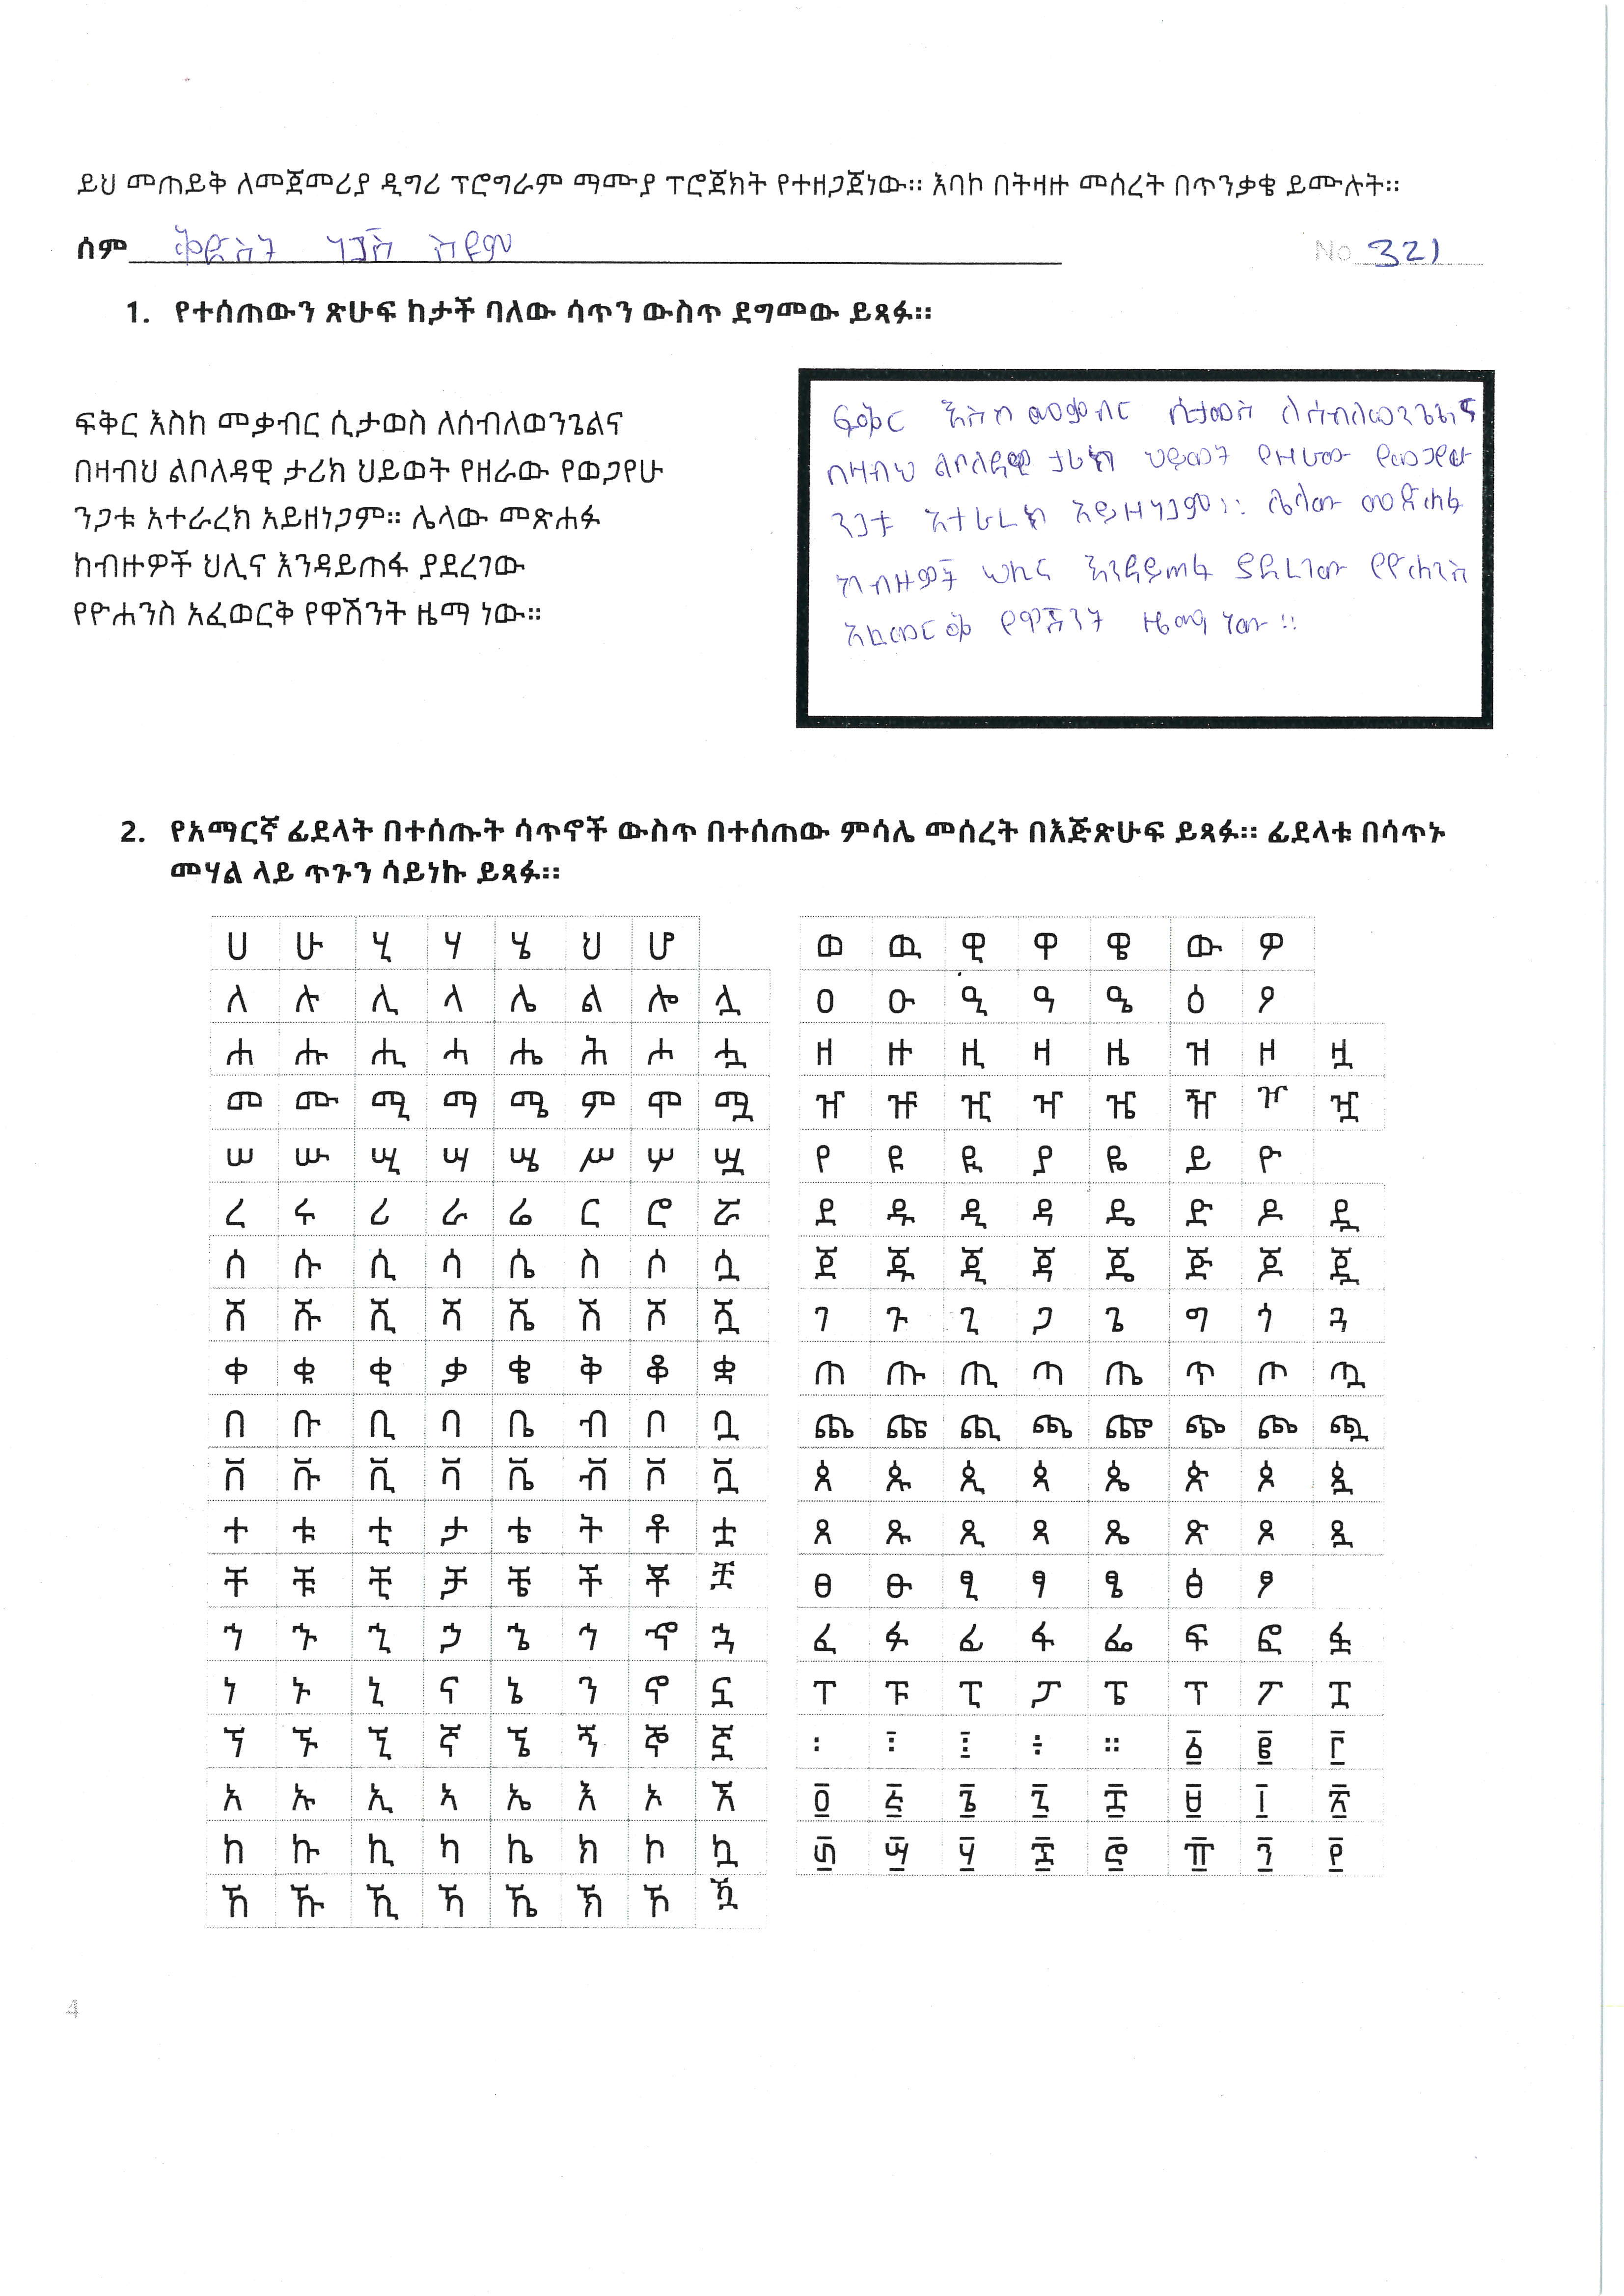 ይህ መጠይቅ ለመጀመሪያ ዲግሪ ፕሮግራም ማሙያ ፕሮጀክት የተዘጋጀነው። እባኮ በትዛዙ መሰረት በጥንቃቄ ይሙሉት።
ስም ቅድስት ነጋሽ ስዩም No 321
1. የተሰጠውን ጽሁፍ ከታች ባለው ሳጥን ውስጥ ደግመው ይጻፉ።
ፍቅር እስከ መቃብር ሲታወስ ለሰብለወንጌልና
በዛብህ ልቦለዳዊ ታሪክ ህይወት የዘራው የወጋየሁ
ንጋቱ አተራረክ አይዘነጋም። ሌላው መጽሐፉ
ከብዙዎች ህሊና እንዳይጠፋ ያደረገው
የዮሐንስ አፈወርቅ የዋሽንት ዜማ ነው።
ፍቅር እስከ ሲታወስ ለሰብለወንጌልና
በዛብህ ልቦለዳዊ ታሪክ ህይወት የዘራው የወጋየሁ
ንጋቱ አተራረክ አይዘነጋም። ሌላው መጽሐፉ
ከብዙዎች ህሊና እንዳይጠፋ ያደረገው የዮሐንስ
አፈወርቅ የዋሽንት ዜማ ነው።
2. የአማርኛ ፊደላት በተሰጡት ሳጥኖች ውስጥ በተሰጠው ምሳሌ መሰረት በእጅጽሁፍ ይጻፉ። ፊደላቱ በሳጥኑ
መሃል ላይ ጥጉን ሳይነኩ ይጻፉ።
ሀ ሁ ሂ ሃ ሄ ህ ሆ
ለ ሉ ሊ ላ ሌ ል ሎ ሏ
ሐ ሑ ሒ ሓ ሔ ሕ ሖ ሗ
መ ሙ ሚ ማ ሜ ም ሞ ሟ
ሠ ሡ ሢ ሣ ሤ ሥ ሦ ሧ
ረ ሩ ሪ ራ ሬ ር ሮ ሯ
ሰ ሱ ሲ ሳ ሴ ስ ሶ ሷ
ሸ ሹ ሺ ሻ ሼ ሽ ሾ ሿ
ቀ ቁ ቂ ቃ ቄ ቅ ቆ ቋ
በ ቡ ቢ ባ ቤ ብ ቦ ቧ
ቨ ቩ ቪ ቫ ቬ ቭ ቮ ቯ
ተ ቱ ቲ ታ ቴ ት ቶ ቷ
ቸ ቹ ቺ ቻ ቼ ች ቾ ቿ
ኀ ኁ ኂ ኃ ኄ ኅ ኆ ኋ
ነ ኑ ኒ ና ኔ ን ኖ ኗ
ኘ ኙ ኚ ኛ ኜ ኝ ኞ ኟ
አ ኡ ኢ ኣ ኤ እ ኦ ኧ
ከ ኩ ኪ ካ ኬ ክ ኮ ኳ
ኸ ኹ ኺ ኻ ኼ ኽ ኾ ዃ
ወ ዉ ዊ ዋ ዌ ው ዎ
ዐ ዑ ዒ ዓ ዔ ዕ ዖ
ዘ ዙ ዚ ዛ ዜ ዝ ዞ ዟ
ዠ ዡ ዢ ዣ ዤ ዥ ዦ ዧ
የ ዩ ዪ ያ ዬ ይ ዮ
ደ ዱ ዲ ዳ ዴ ድ ዶ ዷ
ጀ ጁ ጂ ጃ ጄ ጅ ጆ ጇ
ገ ጉ ጊ ጋ ጌ ግ ጎ ጓ
ጠ ጡ ጢ ጣ ጤ ጥ ጦ ጧ
ጨ ጩ ጪ ጫ ጬ ጭ ጮ ጯ
ጰ ጱ ጲ ጳ ጴ ጵ ጶ ጷ
ጸ ጹ ጺ ጻ ጼ ጽ ጾ ጿ
ፀ ፁ ፂ ፃ ፄ ፅ ፆ
ፈ ፉ ፊ ፋ ፌ ፍ ፎ ፏ
ፐ ፑ ፒ ፓ ፔ ፕ ፖ ፗ
፡ ፤ ፥ ። ፩ ፪ ፫
፬ ፭ ፮ ፯ ፰ ፱ ፲ ፳
፴ ፵ ፶ ፷ ፸ ፹ ፺ ፻
4